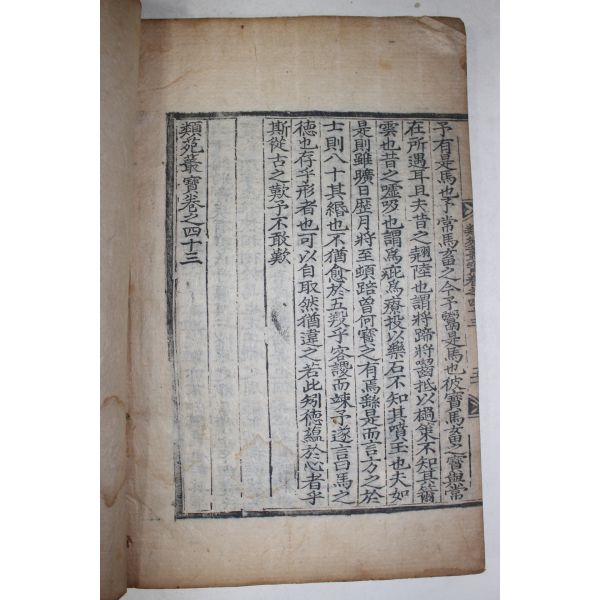 予有是馬也予常馬畜之今予鬻是馬也彼寶馬畜之寶與常
在所遇耳且夫昔之翹陸也謂將蹄將齧抵以檛策不知其籋
雲也昔之噓吸也謂爲疵爲療投以藥石不知其噴玉也夫如
是則雖曠日歴月將至頓踣曾何寶之有焉繇是而言方之於
士則八十其緡也不猶愈於五羖乎客謖而竦予遂言曰馬之
德也存乎形者也可以自取然猶違之若此矧德蘊於心者乎
斯從古之歎予不敢歎
類苑叢寶卷之四十三
類苑叢寶卷之四十三